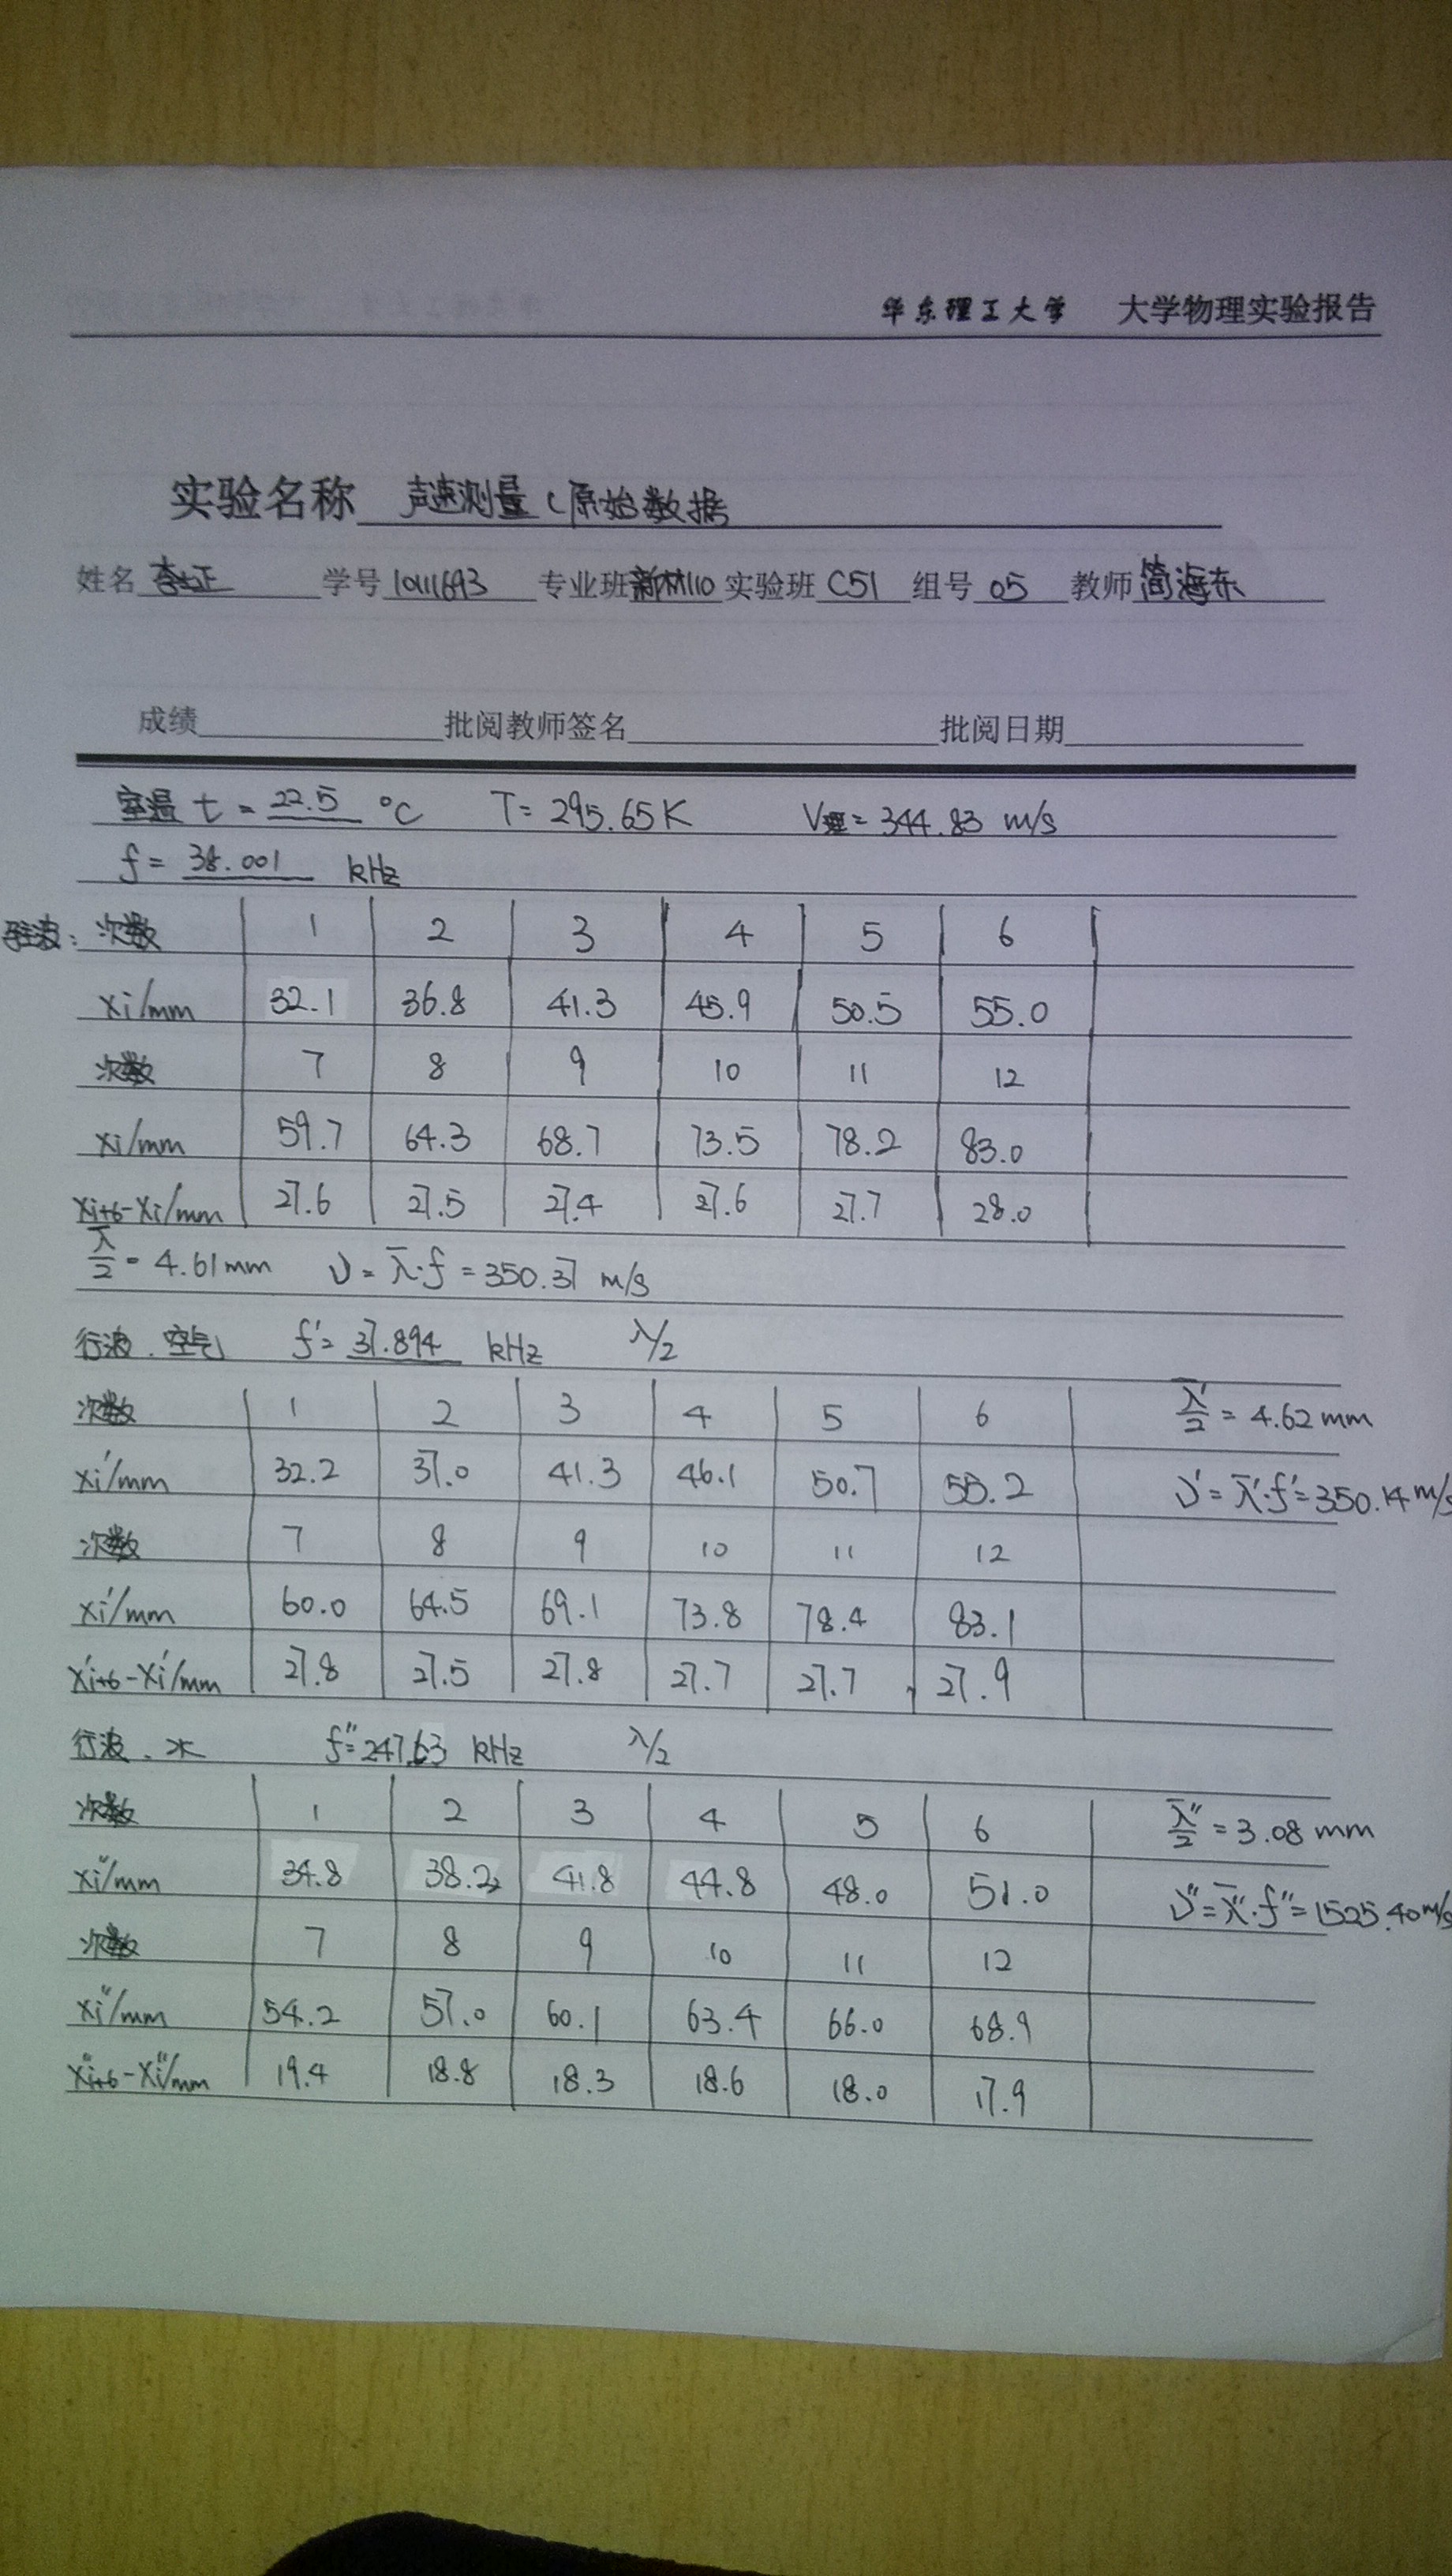 华东理工大学 大学物理实验报告
实验名称 声速测量（原始数据
姓名 李正 学号 10111693 专业班 新材110 实验班 C51 组号 05 教师 简海东
成绩 批阅教师签名 批阅日期
室温 t = 22.5 °C T = 295.65K V理 = 344.83 m/s
f = 38.001 kHz
驻波： 次数 1 2 3 4 5 6
xi/mm 32.1 36.8 41.3 45.9 50.5 55.0
次数 7 8 9 10 11 12
xi/mm 59.7 64.3 68.7 73.5 78.2 83.0
xi+6-xi/mm 27.6 27.5 27.4 27.6 27.7 28.0
λ̄/2 = 4.61mm ν = λ̄·f = 350.37 m/s
行波、空气 f′= 37.894 kHz λ/2
次数 1 2 3 4 5 6 λ̄′/2 = 4.62 mm
xi′/mm 32.2 37.0 41.3 46.1 50.7 55.2 ν′= λ̄′·f′= 350.14 m/s
次数 7 8 9 10 11 12
xi′/mm 60.0 64.5 69.1 73.8 78.4 83.1
x′i+6-xi′/mm 27.8 27.5 27.8 27.7 27.7 27.9
行波、水 f″= 247.63 kHz λ/2
次数 1 2 3 4 5 6 λ̄″/2 = 3.08 mm
xi″/mm 34.8 38.2 41.8 44.8 48.0 51.0 ν″= λ̄″·f″= 1525.40 m/s
次数 7 8 9 10 11 12
xi″/mm 54.2 57.0 60.1 63.4 66.0 68.9
x″i+6-xi″/mm 19.4 18.8 18.3 18.6 18.0 17.9